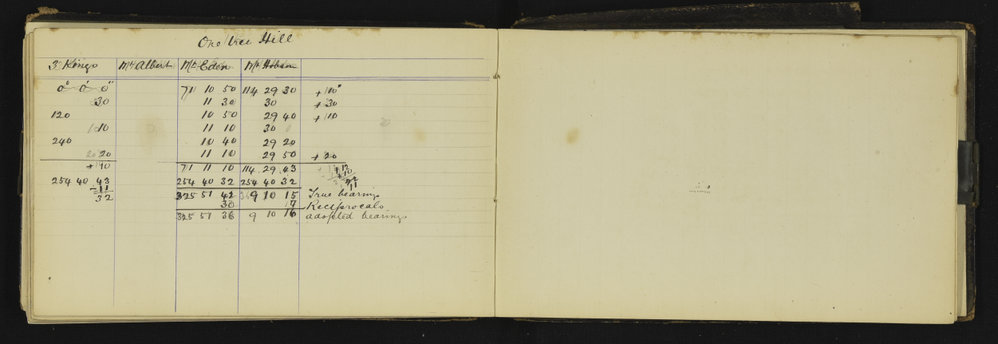 One tree Hill
3 Kings Mt Albert Mt Eden Mt Hobson
0° 0' 0" 71 10 50 114 29 30 + 10"
30 11 30 30 + 30
120 10 50 29 40 + 10
10 11 10 30
240 10 40 29 20
20 11 10 29 50 + 20
+ 10 71 11 10 114 29 43
254 40 43 254 40 32 254 40 32
11 325 51 42 9 10 15 True bearings
32 30 17 Reciprocals
325 51 36 9 10 16 adopted bearings